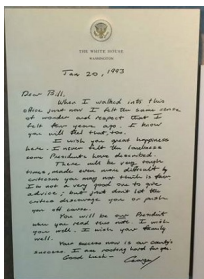 THE WHITE HOUSE
WASHINGTON
Jan 20, 1993
Dear Bill,
When I walked into this
office just now I felt the same sense
of wonder and respect that I
felt four years ago. I know
you will feel that, too.
I wish you great happiness
here. I never felt the loneliness
some Presidents have described.
There will be very tough
times, made even more difficult by
criticism you may not think is fair.
I'm not a very good one to give
advice; but just don't let the
critics discourage you or push
you off course.
You will be our President
when you read this note. I wish
you well. I wish your family
well.
Your success now is our country's
success. I am rooting hard for you.
Good Luck —
George